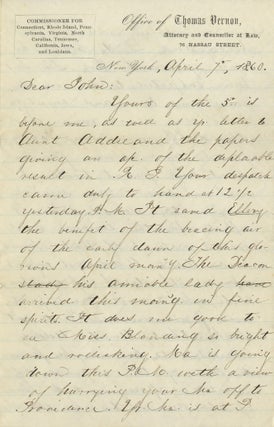 COMMISSIONER FOR
Connecticut, Rhode Island, Penn-
sylvania, Virginia, North
Carolina, Tennessee,
California, Iowa,
and Louisiana.
Office of Thomas Vernon,
Attorney and Counsellor at Law,
76 NASSAU STREET.
New York, April 7th, 1860.
Dear John:
Yours of the 5th is
before me, as well as yr letter to
Aunt Addie and the papers
giving an ap. of the deplorable
result in R. I. Your despatch
came duly to hand at 12 1/2
yesterday P. M. It saved Ellery
the benefit of the bracing air
of the early dawn of this glo-
rious April morn'g. The Deacon
his amiable lady
arrived this morn'g in fine
spirits. It does me good to
see Miss. Blanding so bright
and rollicking. Ma is going
down this P. M. with a view
of hurrying your Ma off to
Providence. Yr Ma is at